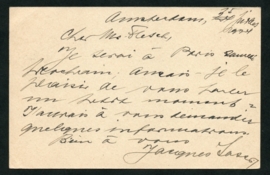 Amsterdam, 25
Cher Mr Flesch
Je serai à Paris samedi
prochain; aurais-je le
plaisir de vous parler
un petit moment?
J'aurais à vous demander
quelques informations
Bien à vous
Jacques